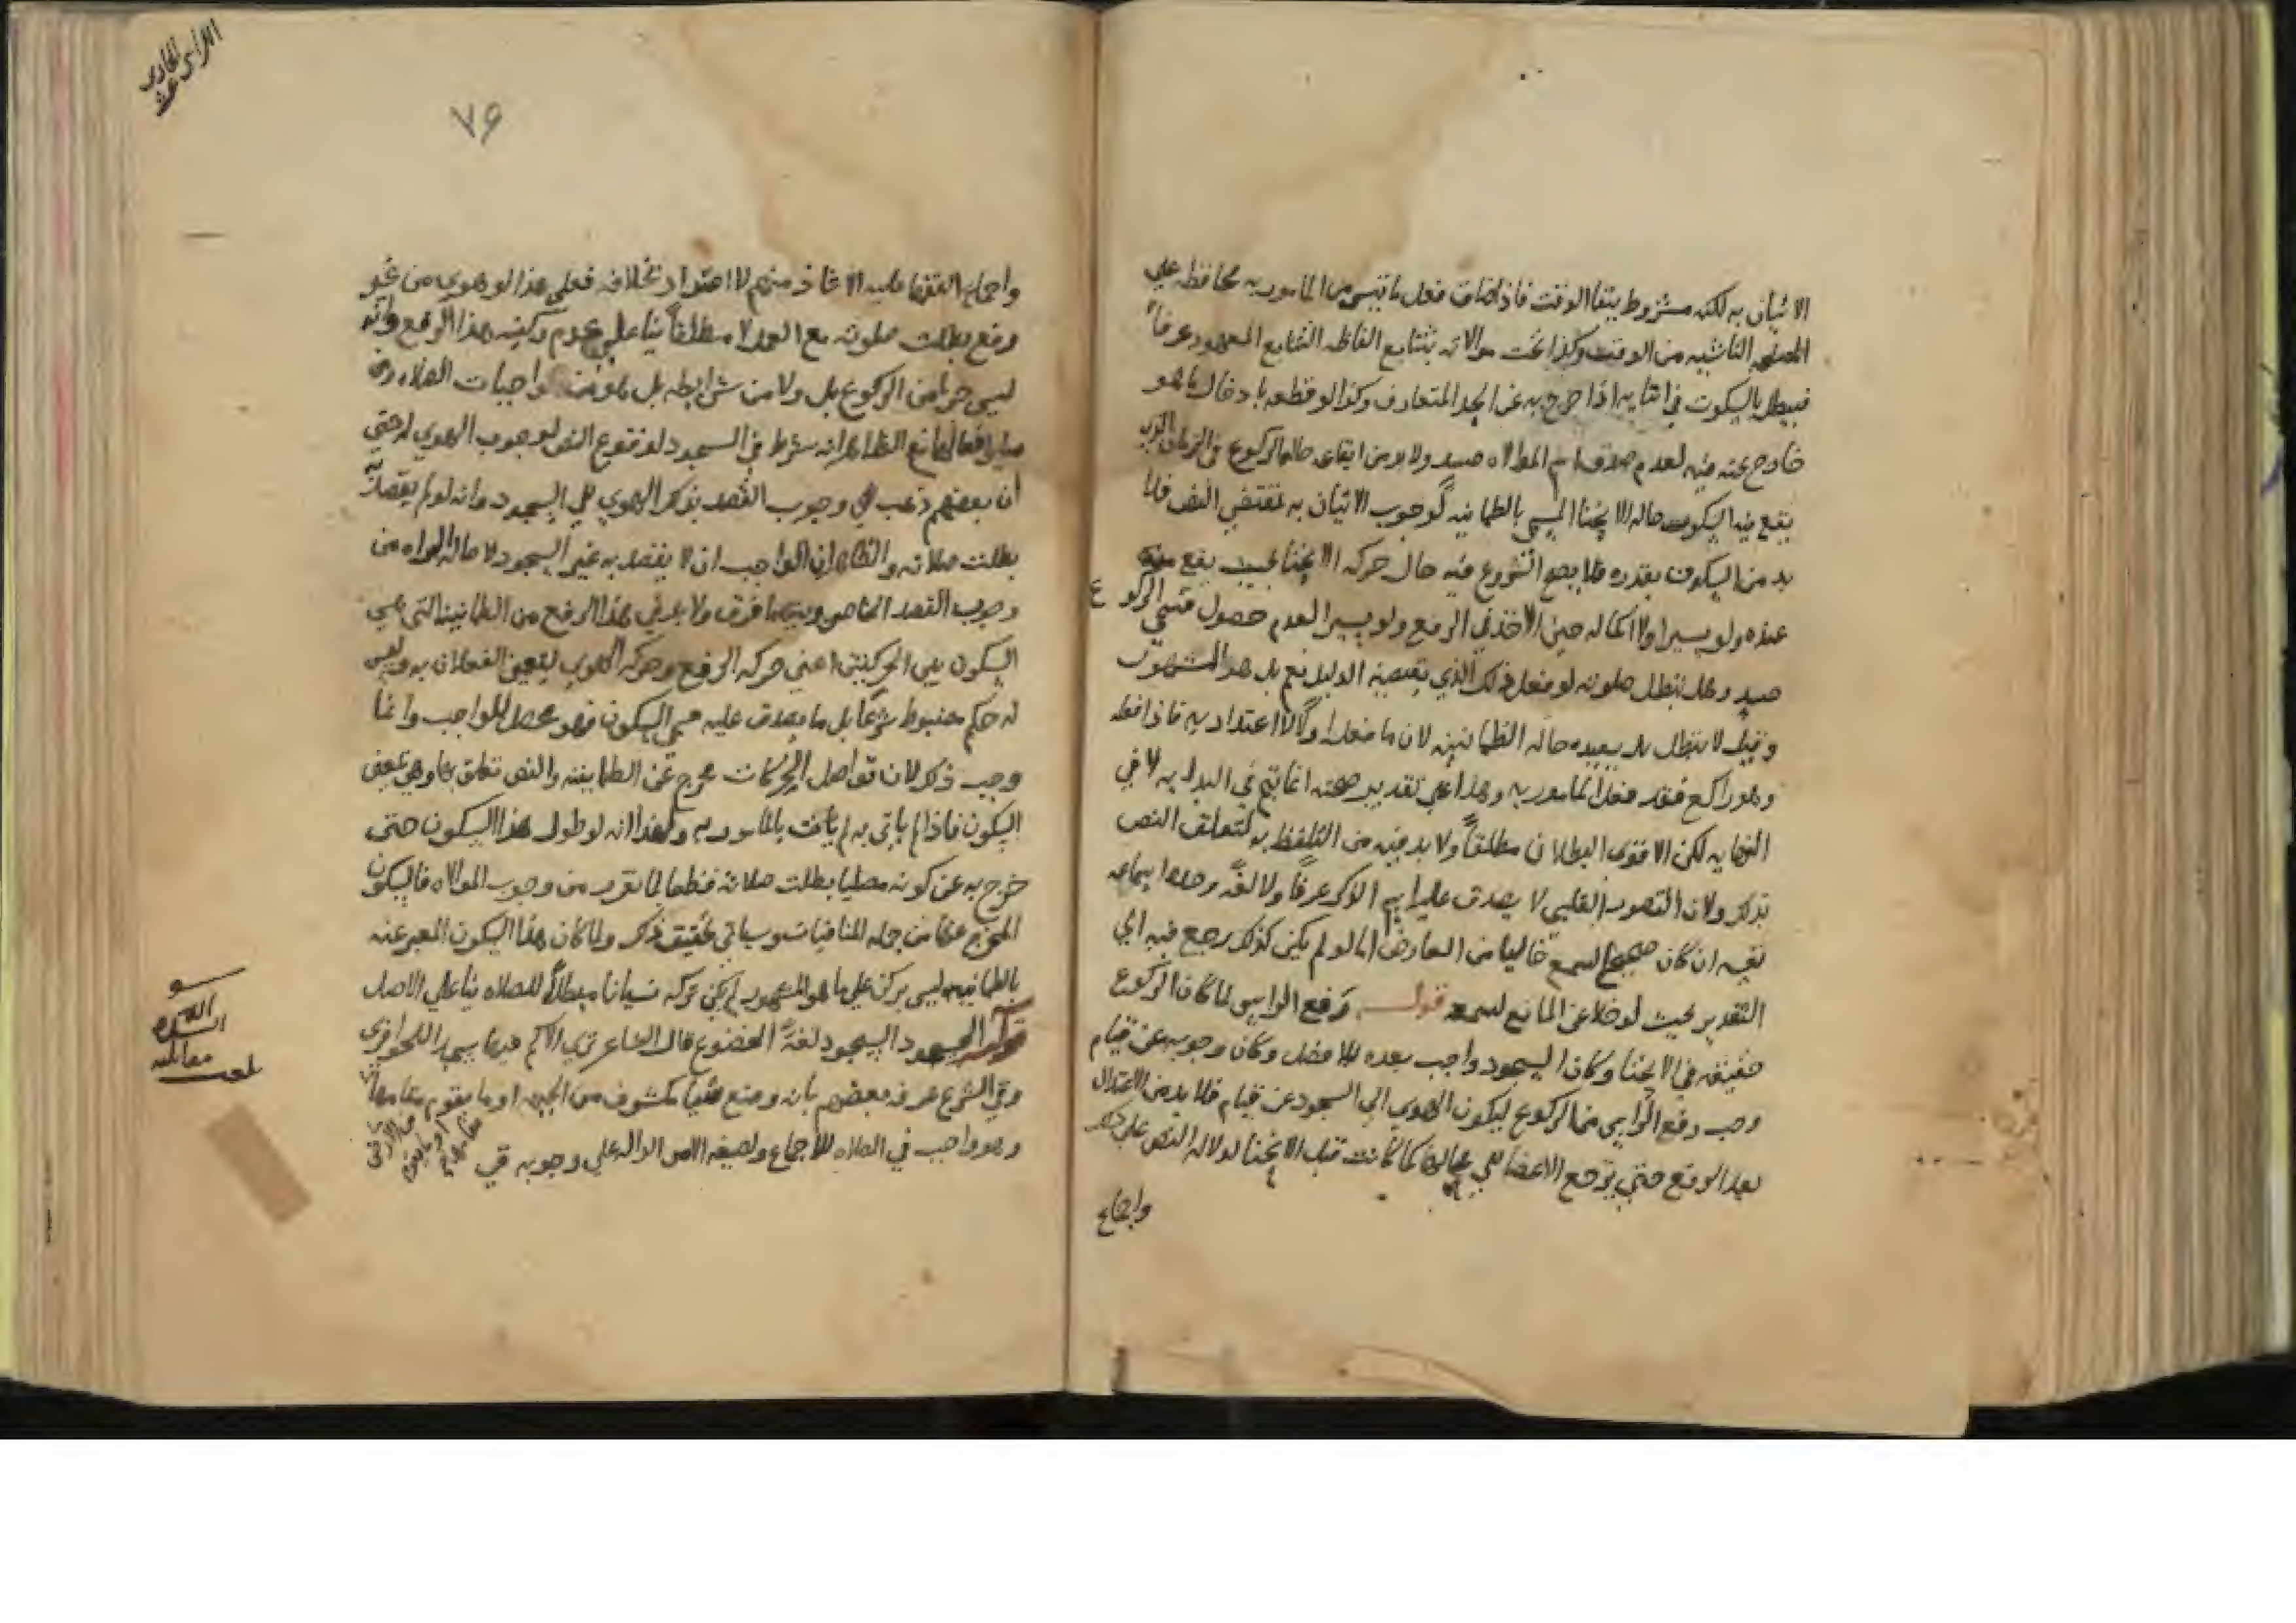 الاتيان به لكنه مشروط ببقا الوقت فاذا ضاق فعل ما تيسر من المامور به محافظه علي
المصلحه الناشيه من الوقت وكذا تجب موالاته بتتابع الفاظه التتابع المعهود عرفاً
فيبطل بالسكوت في اثنايه اذا خرج به عن الحد المتعارف وكذا لو قطعه بادخال ما هو
خارج عنه فيه لعدم صدق اسم الموالاه حينيد ولا بد من ايقاعه حاله الركوع في الزمان الذي
يقع فيه السكون حاله الانحنا المسمي بالطمانينه لوجوب الاتيان به بمقتضي النص فلا
بد من السكون بقدره فلا يصح الشروع فيه حال حركه الانحنا بحيث يقع منه
عنده ولو يسيرا ولا اكماله حين الاخذ في الرفع ولو يسيرا لعدم حصول مسمي الركوع
حينيد وهل تبطل صلوته لو فعل ذلك الذي يقتضيه الدليل نعم بل هو المشهور
وقيل لا تبطل بل يعيده حاله الطمانينه لان ما فعله اولاً لا اعتداد به فاذا فعله
وهو راكع فقد فعل المامور به وهذا علي تقدير صحته انما يتم في البدايه لا في
النهايه لكن الاقوي البطلان مطلقاً ولا بد فيه من التلفظ به لتعلق النص
بذلك ولان التصور القلبي لا يصدق عليه اسم الذكر عرفاً ولا لغةً وحده اسماعه
نفسه ان كان صحيح السمع خاليا من العارض اما لو لم يكن كذلك رجع فيه الي
التقدير بحيث لو خلا عن المانع لسمعه قوله ورفع الراس لما كان الركوع
حقيقه في الانحنا وكان السجود واجب بعده بلا فصل وكان وجوبه عن قيام
وجب رفع الراس من الركوع ليكون الهوي الي السجود عن قيام فلا بد من الاعتدال
بعد الرفع حتي ترجع الاعضا الي محالها كما كانت قبل الانحنا لدلاله النص علي ذلك
واجماع
٧۶
واجماع الفقها عليه الا شاذ منهم لا اعتداد بخلافه فعلي هذا لو هوي من غير
رفع بطلت صلوته مع العمد لا مطلقاً بنا علي عدم ركنيه هذا الرفع وانه
ليس جزءا من الركوع بل ولا من شرايطه بل هو من واجبات الصلاه ومن
افعالها نعم الظاهر انه شرط في السجود لوقوع النص بوجوب الهوي له حتي
ان بعضهم ذهب الي وجوب القصد بذلك الهوي الي السجود وانه لو لم يقصد به
بطلت صلاته والظاهر ان الواجب ان لا يقصد به غير السجود لاصاله البراه من
وجوب القصد الخاص وبينهما فرق ولا بد في هذا الرفع من الطمانينه التي هي
السكون بين الحركتين اعني حركه الرفع وحركه الهوي ليتميز الفعلان به وليس
له حكم مضبوط شرعا بل ما يصدق عليه مسمي السكون فهو محصل للواجب وانما
وجب ذكر لان تواصل الحركات مخرج عن الطمانينه والنص تعلق بها وهي بمعني
السكون فاذا لم ياتي به لم يات بالمامور به ولهذا انه لو طول هذا السكون حتي
خرج به عن كونه مصليا بطلت صلاته قطعا لما تقرر من وجوب الموالاه فالسكون
المخرج عنها من جمله المنافيات وسياتي تحقيق ذلك ولما كان هذا السكون المعبر عنه
بالطمانينه ليس بركن علي ما هو المشهور لم يكن تركه نسيانا مبطلاً للصلاه بنا علي الاصل
قوله السجود السجود لغةً الخضوع قال الشاعر تري الاكم فيها سجدا للحوافر
وفي الشرع عرفه بعضهم بانه وضع مكشوف من الجبهه او ما يقوم مقامها
وهو واجب في الصلاه للاجماع ولصيغه الامر الداله علي وجوبه في